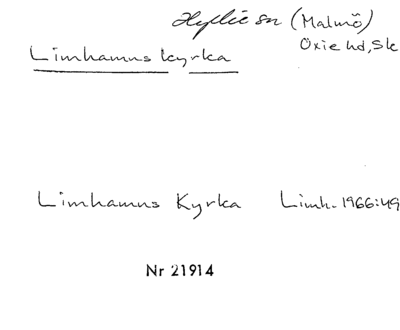 Hyllie sn (Malmö)
Oxie hd, Sk
Limhamns kyrka
Limhamns Kyrka Limh. 1966:49
Nr 21914